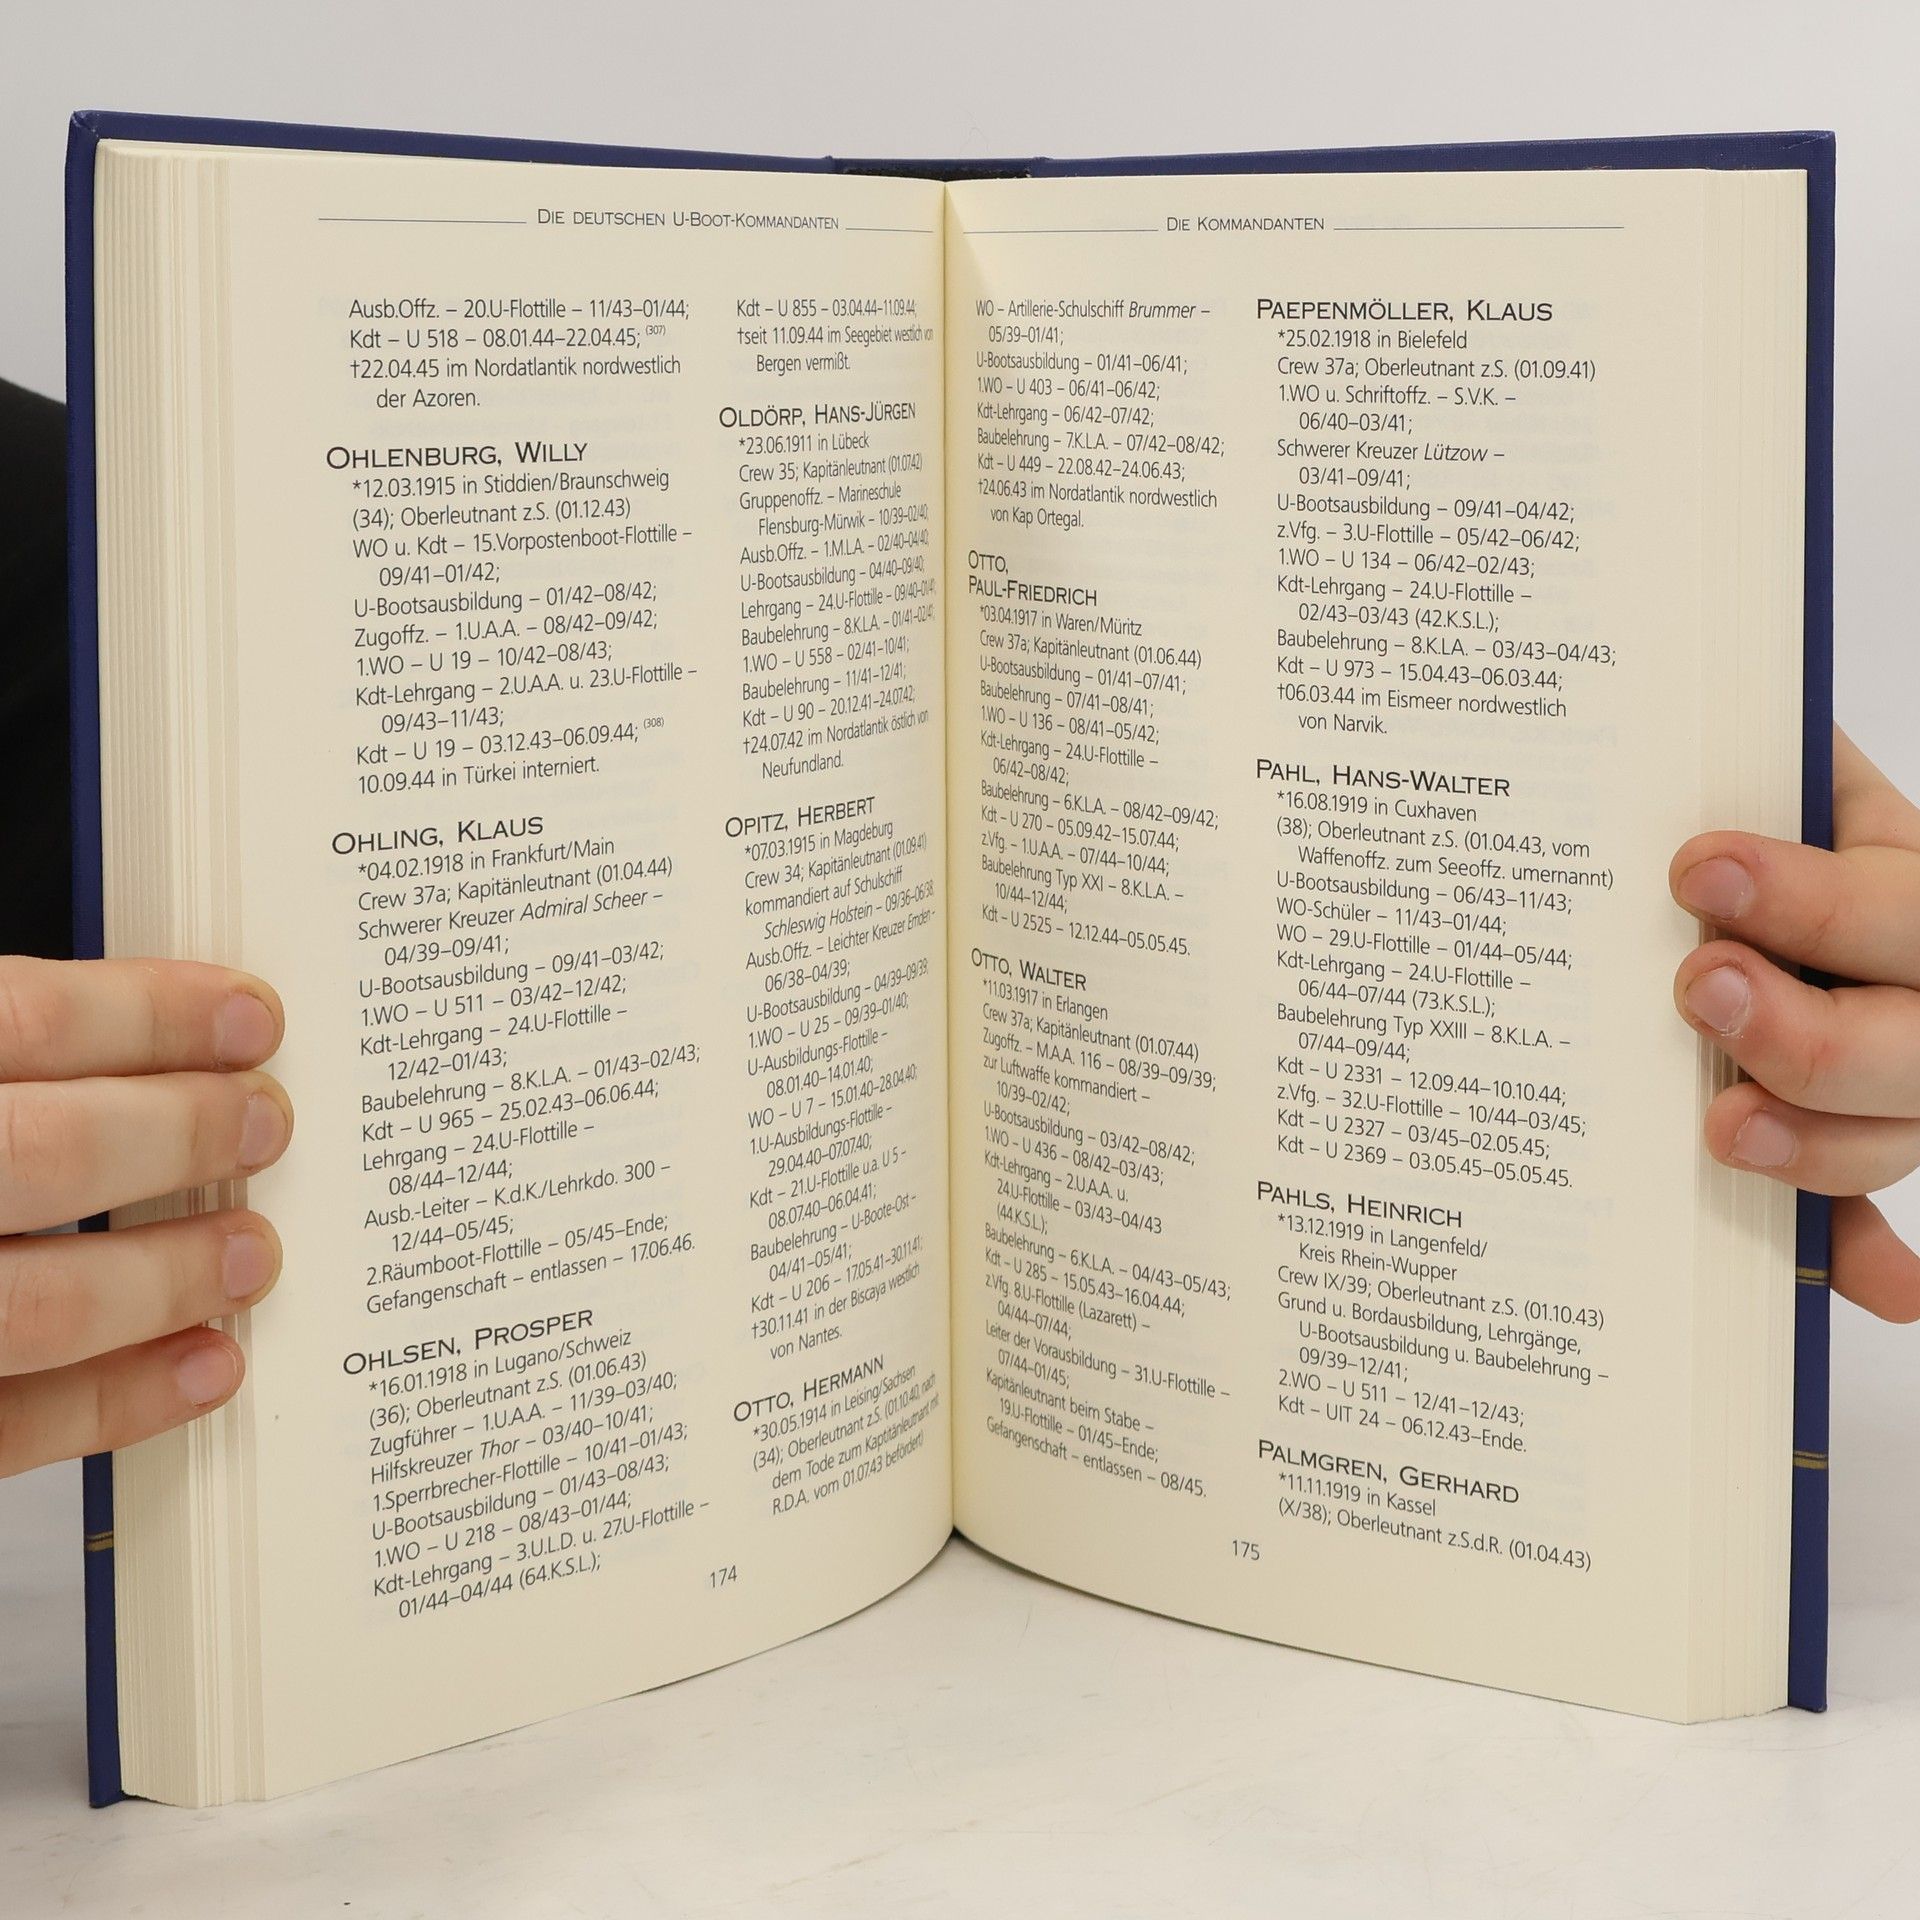 DIE DEUTSCHEN U-BOOT-KOMMANDANTEN
Ausb.Offz. – 20.U-Flottille – 11/43–01/44;
Kdt – U 518 – 08.01.44–22.04.45; (307)
†22.04.45 im Nordatlantik nordwestlich
der Azoren.
OHLENBURG, WILLY
*12.03.1915 in Stiddien/Braunschweig
(34); Oberleutnant z.S. (01.12.43)
WO u. Kdt – 15.Vorpostenboot-Flottille –
09/41–01/42;
U-Bootsausbildung – 01/42–08/42;
Zugoffz. – 1.U.A.A. – 08/42–09/42;
1.WO – U 19 – 10/42–08/43;
Kdt-Lehrgang – 2.U.A.A. u. 23.U-Flottille –
09/43–11/43;
Kdt – U 19 – 03.12.43–06.09.44; (308)
10.09.44 in Türkei interniert.
OHLING, KLAUS
*04.02.1918 in Frankfurt/Main
Crew 37a; Kapitänleutnant (01.04.44)
Schwerer Kreuzer Admiral Scheer –
04/39–09/41;
U-Bootsausbildung – 09/41–03/42;
1.WO – U 511 – 03/42–12/42;
Kdt-Lehrgang – 24.U-Flottille –
12/42–01/43;
Baubelehrung – 8.K.L.A. – 01/43–02/43;
Kdt – U 965 – 25.02.43–06.06.44;
Lehrgang – 24.U-Flottille –
08/44–12/44;
Ausb.-Leiter – K.d.K./Lehrkdo. 300 –
12/44–05/45;
2.Räumboot-Flottille – 05/45–Ende;
Gefangenschaft – entlassen – 17.06.46.
OHLSEN, PROSPER
*16.01.1918 in Lugano/Schweiz
(36); Oberleutnant z.S. (01.06.43)
Zugführer – 1.U.A.A. – 11/39–03/40;
Hilfskreuzer Thor – 03/40–10/41;
1.Sperrbrecher-Flottille – 10/41–01/43;
U-Bootsausbildung – 01/43–08/43;
1.WO – U 218 – 08/43–01/44;
Kdt-Lehrgang – 3.U.L.D. u. 27.U-Flottille –
01/44–04/44 (64.K.S.L.);
Kdt – U 855 – 03.04.44–11.09.44;
†seit 11.09.44 im Seegebiet westlich von
Bergen vermißt.
OLDÖRP, HANS-JÜRGEN
*23.06.1911 in Lübeck
Crew 35; Kapitänleutnant (01.07.42)
Gruppenoffz. – Marineschule
Flensburg-Mürwik – 10/39–02/40;
Ausb.Offz. – 1.M.L.A. – 02/40–04/40;
U-Bootsausbildung – 04/40–09/40;
Lehrgang – 24.U-Flottille – 09/40–01/41;
Baubelehrung – 8.K.L.A. – 01/41–02/41;
1.WO – U 558 – 02/41–10/41;
Baubelehrung – 11/41–12/41;
Kdt – U 90 – 20.12.41–24.07.42;
†24.07.42 im Nordatlantik östlich von
Neufundland.
OPITZ, HERBERT
*07.03.1915 in Magdeburg
Crew 34; Kapitänleutnant (01.09.41)
kommandiert auf Schulschiff
Schleswig Holstein – 09/36–06/38;
Ausb.Offz. – Leichter Kreuzer Emden –
06/38–04/39;
U-Bootsausbildung – 04/39–09/39;
1.WO – U 25 – 09/39–01/40;
U-Ausbildungs-Flottille –
08.01.40–14.01.40;
WO – U 7 – 15.01.40–28.04.40;
1.U-Ausbildungs-Flottille –
29.04.40–07.07.40;
Kdt – 21.U-Flottille u.a. U 5 –
08.07.40–06.04.41;
Baubelehrung – U-Boote-Ost –
04/41–05/41;
Kdt – U 206 – 17.05.41–30.11.41;
†30.11.41 in der Biscaya westlich
von Nantes.
OTTO, HERMANN
*30.05.1914 in Leising/Sachsen
(34); Oberleutnant z.S. (01.10.40, nach
dem Tode zum Kaptitänleutnant mit
R.D.A. vom 01.07.43 befördert)
174
DIE KOMMANDANTEN
WO – Artillerie-Schulschiff Brummer –
05/39–01/41;
U-Bootsausbildung – 01/41–06/41;
1.WO – U 403 – 06/41–06/42;
Kdt-Lehrgang – 06/42–07/42;
Baubelehrung – 7.K.L.A. – 07/42–08/42;
Kdt – U 449 – 22.08.42–24.06.43;
†24.06.43 im Nordatlantik nordwestlich
von Kap Ortegal.
OTTO,
PAUL-FRIEDRICH
*03.04.1917 in Waren/Müritz
Crew 37a; Kapitänleutnant (01.06.44)
U-Bootsausbildung – 01/41–07/41;
Baubelehrung – 07/41–08/41;
1.WO – U 136 – 08/41–05/42;
Kdt-Lehrgang – 24.U-Flottille –
06/42–08/42;
Baubelehrung – 6.K.L.A. – 08/42–09/42;
Kdt – U 270 – 05.09.42–15.07.44;
z.Vfg. – 1.U.A.A. – 07/44–10/44;
Baubelehrung Typ XXI – 8.K.L.A. –
10/44–12/44;
Kdt – U 2525 – 12.12.44–05.05.45.
OTTO, WALTER
*11.03.1917 in Erlangen
Crew 37a; Kapitänleutnant (01.07.44)
Zugoffz. – M.A.A. 116 – 08/39–09/39;
zur Luftwaffe kommandiert –
10/39–02/42;
U-Bootsausbildung – 03/42–08/42;
1.WO – U 436 – 08/42–03/43;
Kdt-Lehrgang – 2.U.A.A. u.
24.U-Flottille – 03/43–04/43
(44.K.S.L.);
Baubelehrung – 6.K.L.A. – 04/43–05/43;
Kdt – U 285 – 15.05.43–16.04.44;
z.Vfg. 8.U-Flottille (Lazarett) –
04/44–07/44;
Leiter der Vorausbildung – 31.U-Flottille –
07/44–01/45;
Kapitänleutnant beim Stabe –
19.U-Flottille – 01/45–Ende;
Gefangenschaft – entlassen – 08/45.
PAEPENMÖLLER, KLAUS
*25.02.1918 in Bielefeld
Crew 37a; Oberleutnant z.S. (01.09.41)
1.WO u. Schriftoffz. – S.V.K. –
06/40–03/41;
Schwerer Kreuzer Lützow –
03/41–09/41;
U-Bootsausbildung – 09/41–04/42;
z.Vfg. – 3.U-Flottille – 05/42–06/42;
1.WO – U 134 – 06/42–02/43;
Kdt-Lehrgang – 24.U-Flottille –
02/43–03/43 (42.K.S.L.);
Baubelehrung – 8.K.LA. – 03/43–04/43;
Kdt – U 973 – 15.04.43–06.03.44;
†06.03.44 im Eismeer nordwestlich
von Narvik.
PAHL, HANS-WALTER
*16.08.1919 in Cuxhaven
(38); Oberleutnant z.S. (01.04.43, vom
Waffenoffz. zum Seeoffz. umernannt)
U-Bootsausbildung – 06/43–11/43;
WO-Schüler – 11/43–01/44;
WO – 29.U-Flottille – 01/44–05/44;
Kdt-Lehrgang – 24.U-Flottille –
06/44–07/44 (73.K.S.L.);
Baubelehrung Typ XXIII – 8.K.L.A. –
07/44–09/44;
Kdt – U 2331 – 12.09.44–10.10.44;
z.Vfg. – 32.U-Flottille – 10/44–03/45;
Kdt – U 2327 – 03/45–02.05.45;
Kdt – U 2369 – 03.05.45–05.05.45.
PAHLS, HEINRICH
*13.12.1919 in Langenfeld/
Kreis Rhein-Wupper
Crew IX/39; Oberleutnant z.S. (01.10.43)
Grund u. Bordausbildung, Lehrgänge,
U-Bootsausbildung u. Baubelehrung –
09/39–12/41;
2.WO – U 511 – 12/41–12/43;
Kdt – UIT 24 – 06.12.43–Ende.
PALMGREN, GERHARD
*11.11.1919 in Kassel
(X/38); Oberleutnant z.S.d.R. (01.04.43)
175